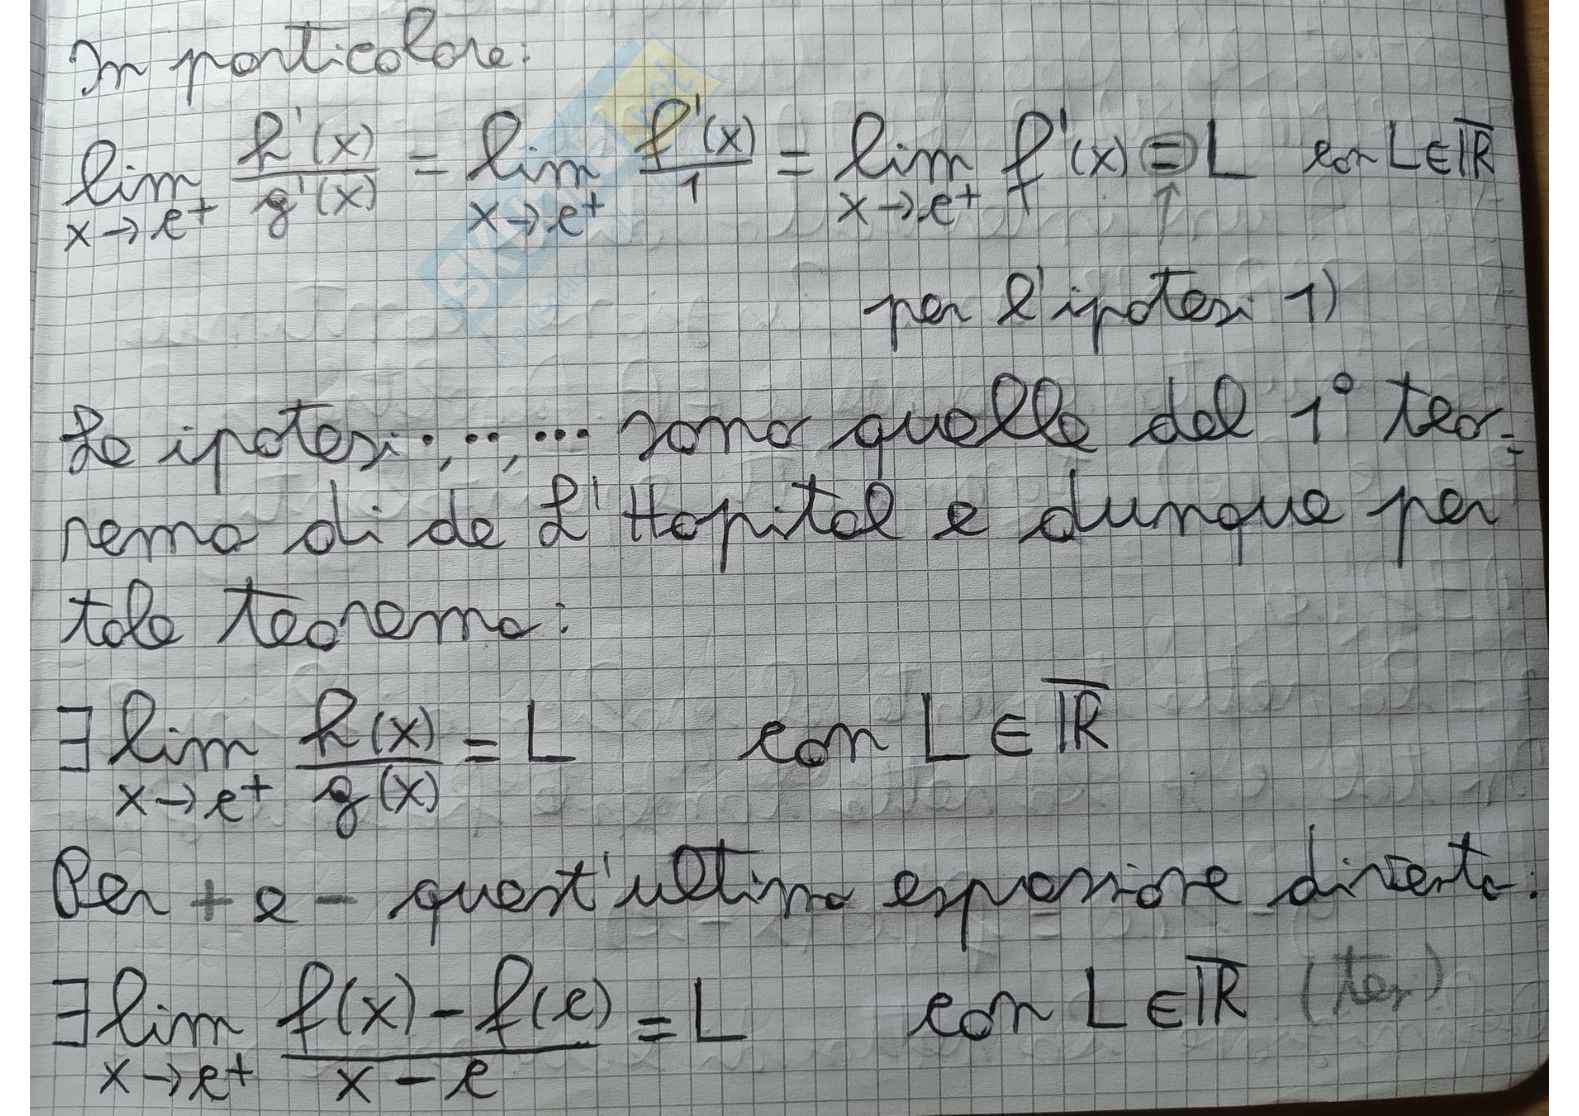 In particolare:
lim x→c+ h'(x)/g'(x) = lim x→c+ f'(x)/1 = lim x→c+ f'(x) = L con L∈R̅
↑
per l'ipotesi 1)
Le ipotesi •, ••, ••• sono quelle del 1° teo-
rema di de L'Hopital e dunque per
tale teorema:
∃ lim x→c+ h(x)/g(x) = L con L∈R̅
Per + e - quest'ultima espressione diventa:
∃ lim x→c+ (f(x)-f(c))/(x-c) = L con L∈R̅ (tesi)